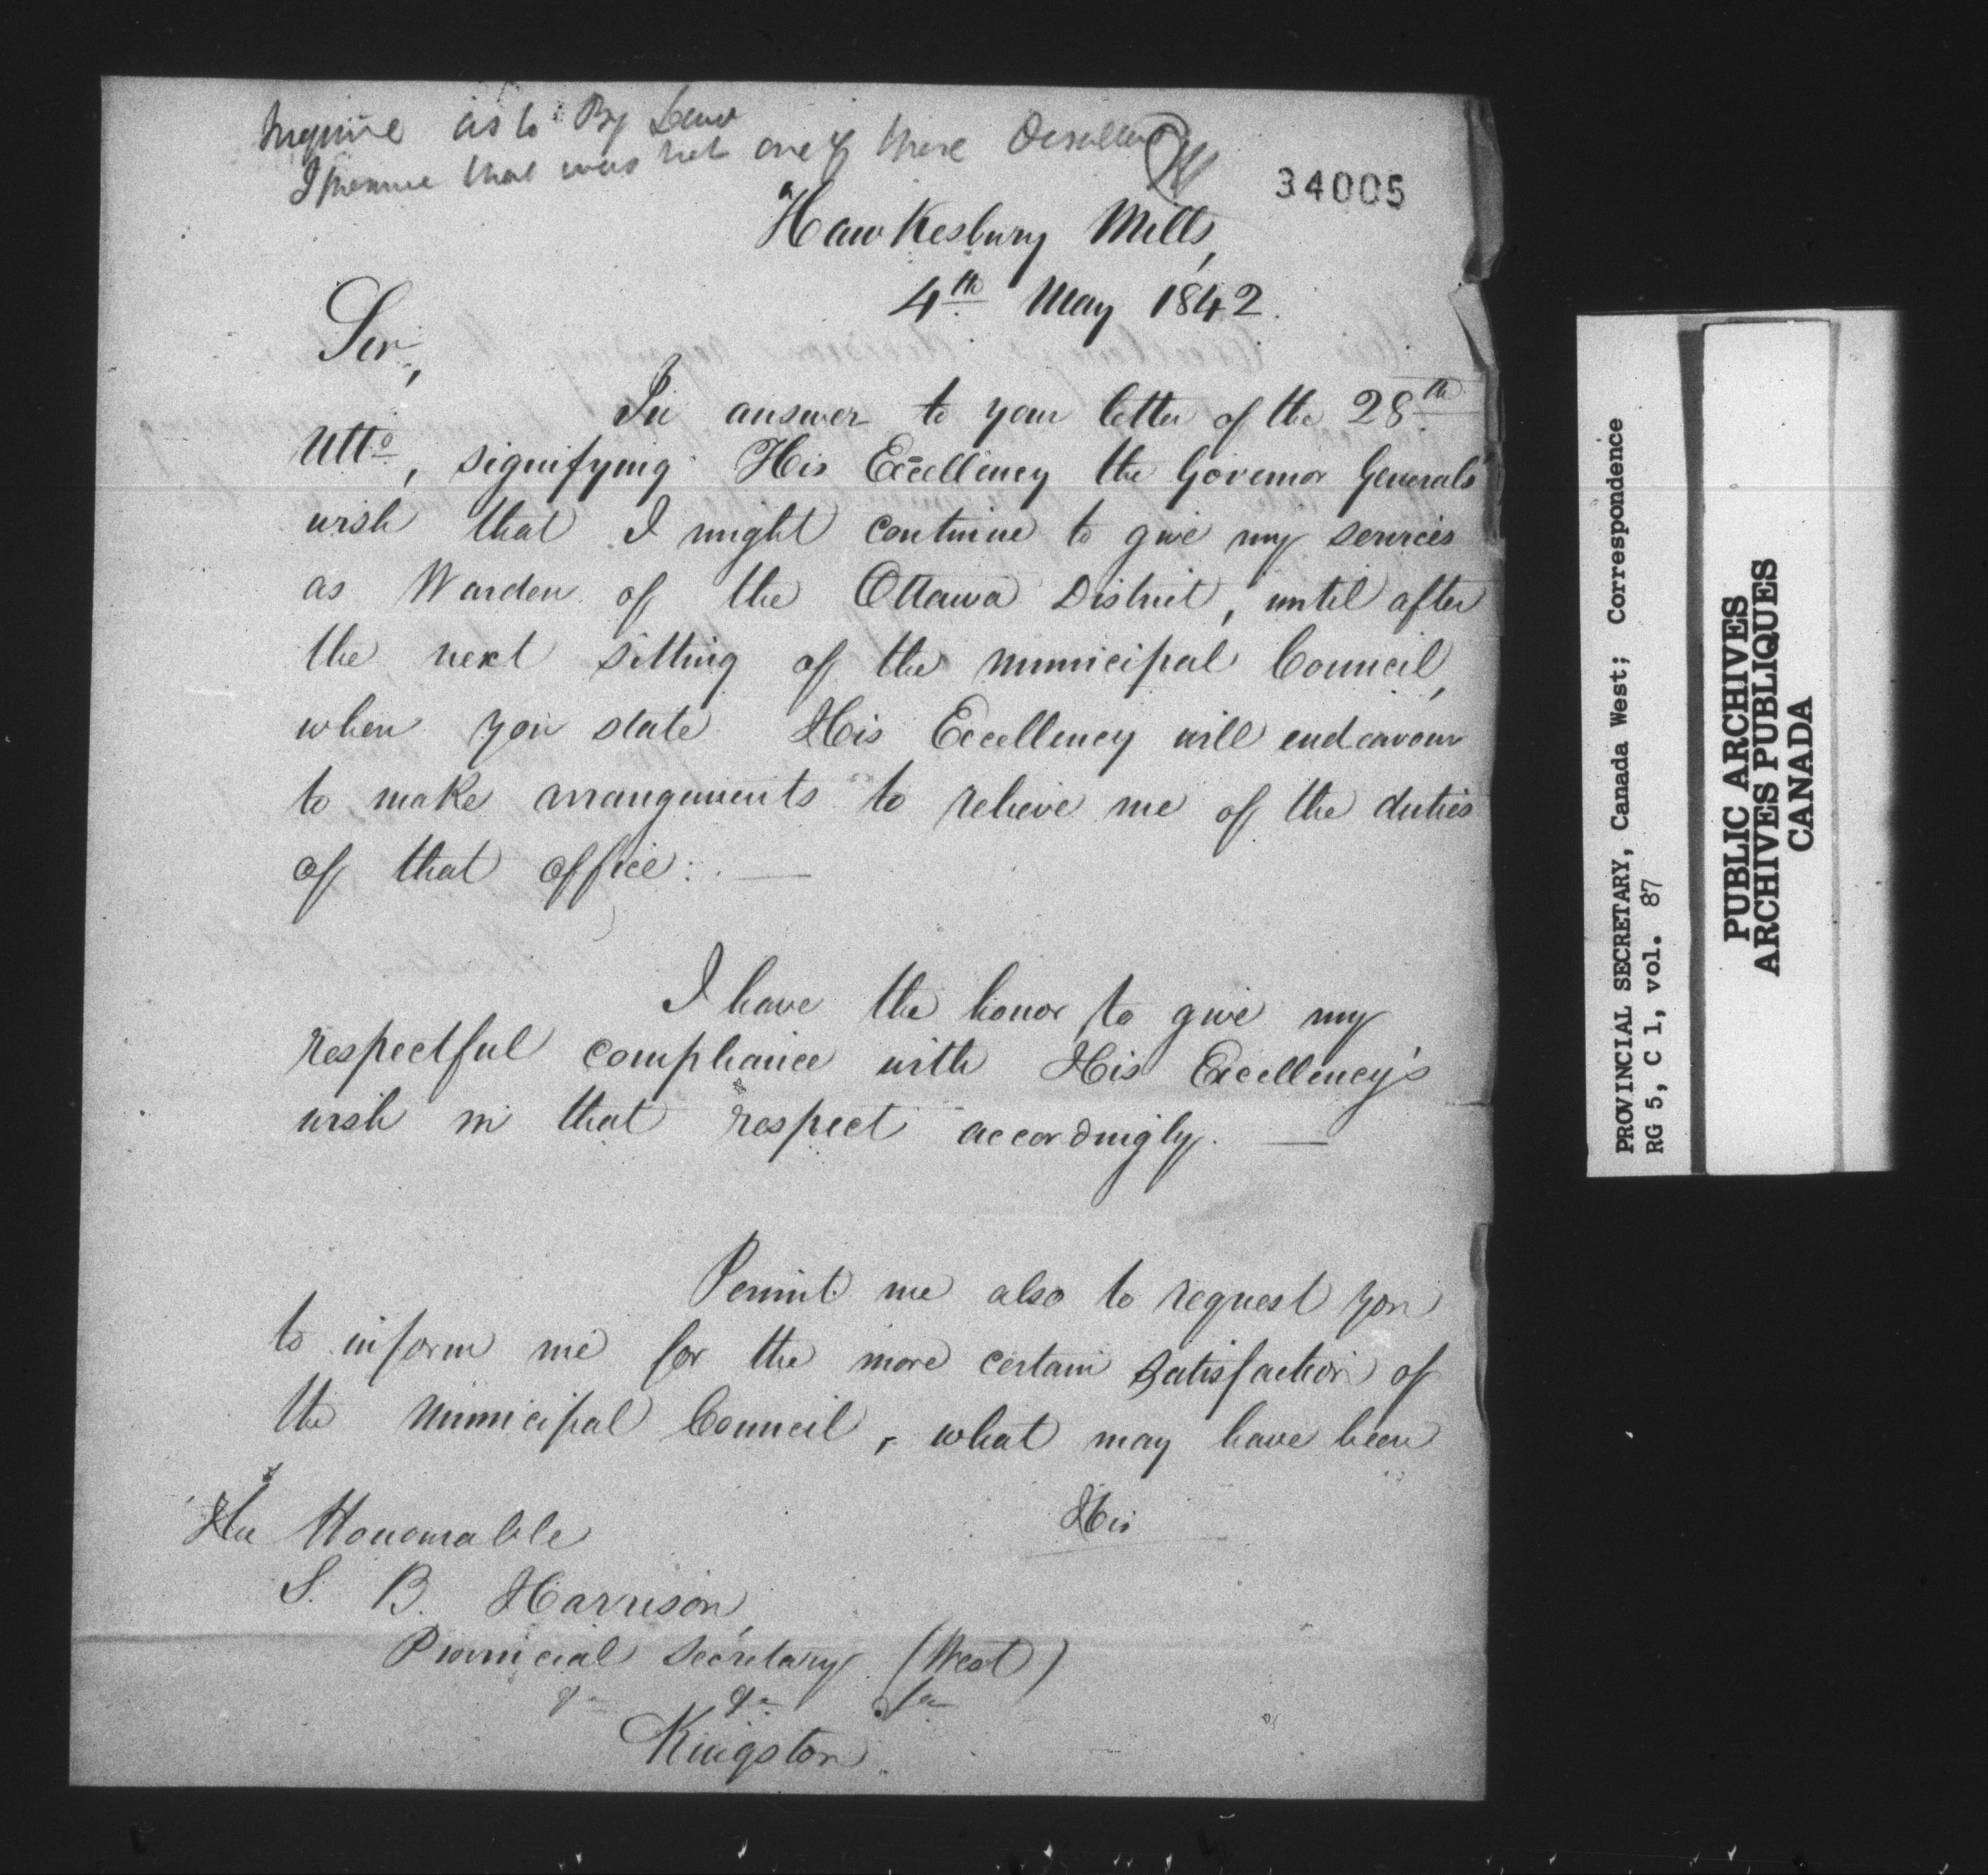 Inquire as to By Law
I presume that was not one of those
34005
Hawkesbury Mills,
4th May 1842.
Sir,
In answer to your letter of the 28th
Ulto, signifying His Excellency the Governor Generals'
wish that I might continue to give my services
as Warden of the Ottawa District, until after
the next sitting of the Municipal Council,
when you state His Excellency will endeavour
to make arrangements to relieve me of the duties
of that office. —
I have the honor to give my
respectful compliance with His Excellency's
wish in that respect accordingly. —
Permit me also to request you
to inform me for the more certain satisfaction of
the Municipal Council, what may have been
His
The Honourable
S. B. Harrison,
Provincial Secretary (West)
&c &c &c
Kingston.
PROVINCIAL SECRETARY, Canada West; Correspondence
RG 5, C 1, vol. 87
PUBLIC ARCHIVES
ARCHIVES PUBLIQUES
CANADA